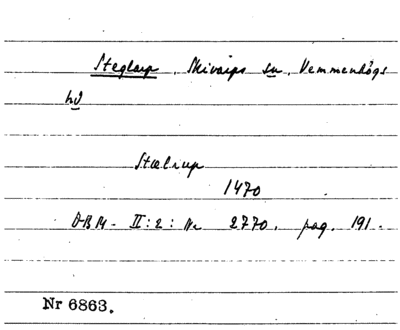 Steglarp, Skivarps sn, Vemmenhögs
hd
Stælrup
1470
ÆDB II:2: Nr 2770, pag. 191.
Nr 6863.